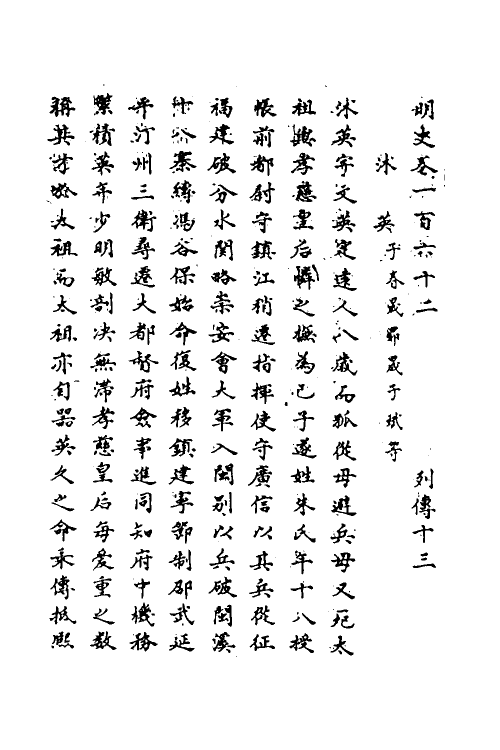 明史卷一百六十二　列傳十三
沐英子春晟昻晟子斌等
沐英字文英定遠人八歲而孤從母避兵母又死太
祖與孝慈皇后憐之撫為己子遂姓朱氏年十八授
帳前都尉守鎮江稍遷指揮使守廣信以其兵從征
福建破分水関略崇安會大軍入閩別以兵破閩溪
十八寨縛馮谷保始命復姓移鎮建寧節制邵武延
平汀州三衛尋遷大都督府僉事進同知府中機務
繁積英年少明敏剖决無滯孝慈皇后每愛重之数
稱其才於太祖而太祖亦訇器英久之命乘傳抵熙